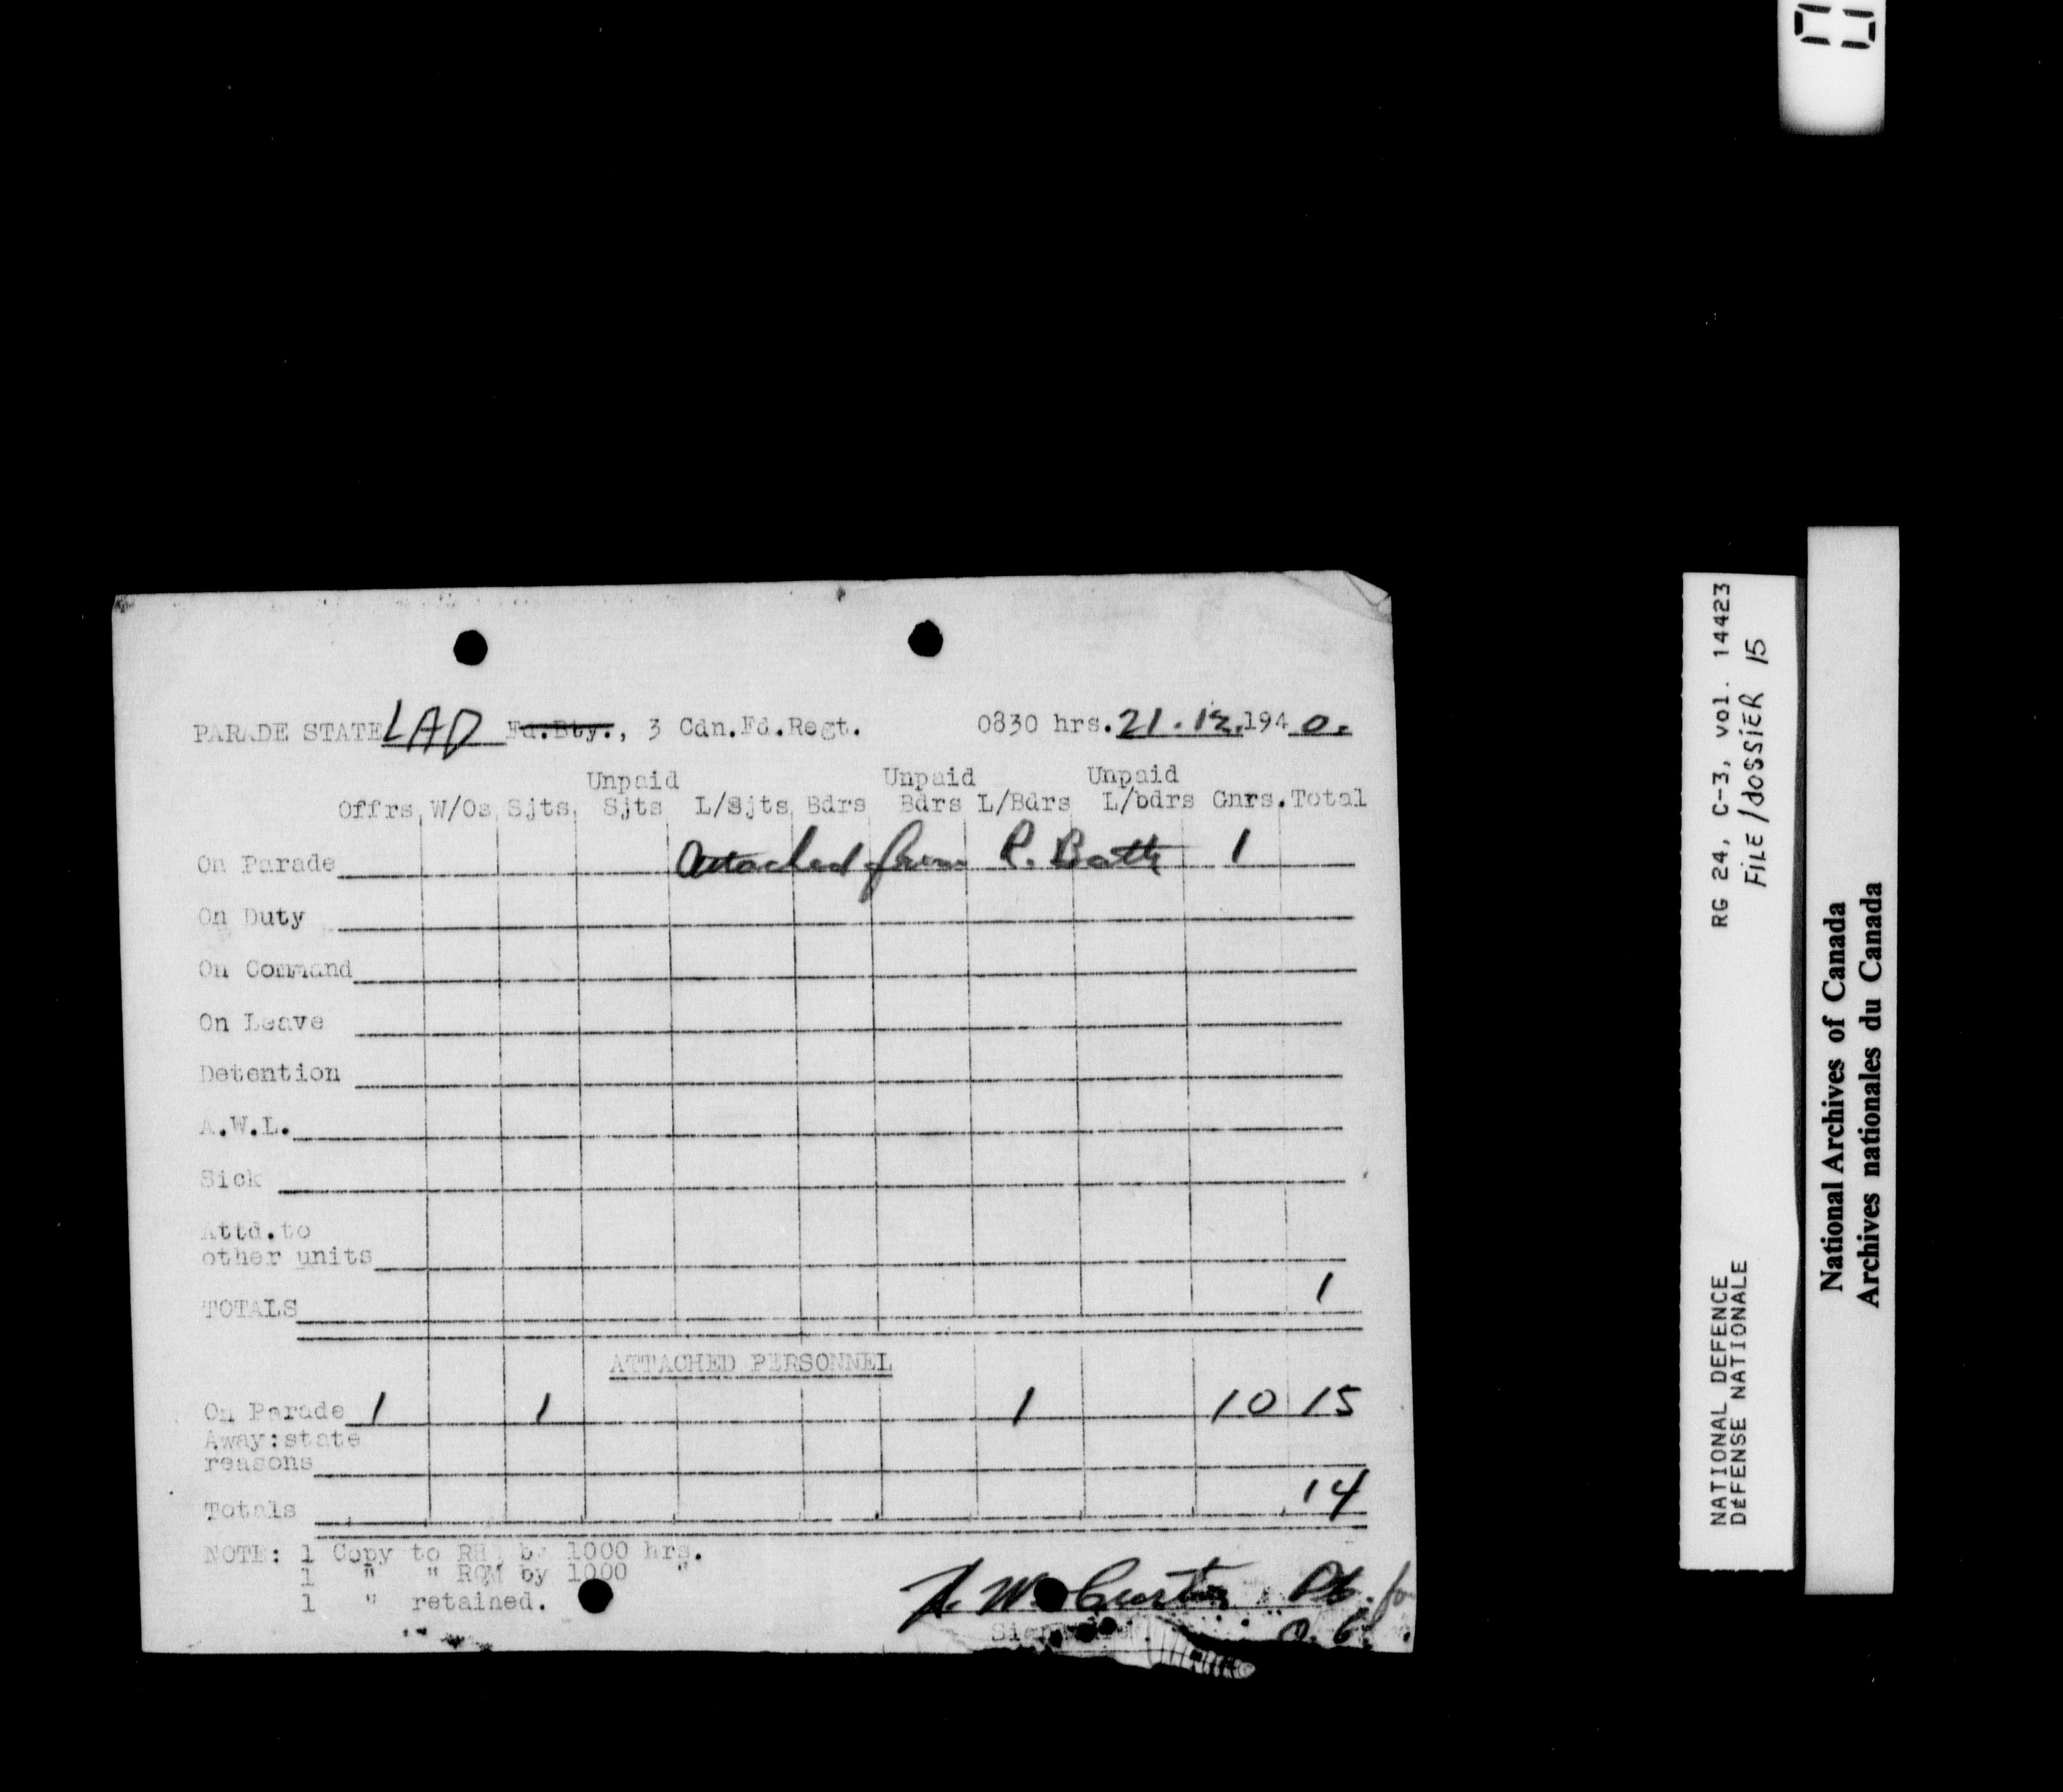 PARADE STATE LAD Fd.Bty., 3 Cdn.Fd.Regt. 0830 hrs. 21.12.1940.
Unpaid Unpaid Unpaid
Offrs W/Os Sjts Sjts L/Sjts Bdrs Bdrs L/Bdrs L/bdrs Gnrs. Total
On Parade Attached from P. Batty 1
On Duty
On Command
On Leave
Detention
A.W.L.
Sick
Attd.to
other units
TOTALS 1
ATTACHED PERSONNEL
On Parade 1 1 1 10 15
Away:state
reasons
Totals 14
NOTE: 1 Copy to RH by 1000 hrs.
1 " " RQM by 1000 "
1 " retained.
W. Curtis
RG 24, C-3, vol. 14423
FILE/dOSSIER 15
NATIONAL DEFENCE
DéFENSE NATIONALE
National Archives of Canada
Archives nationales du Canada